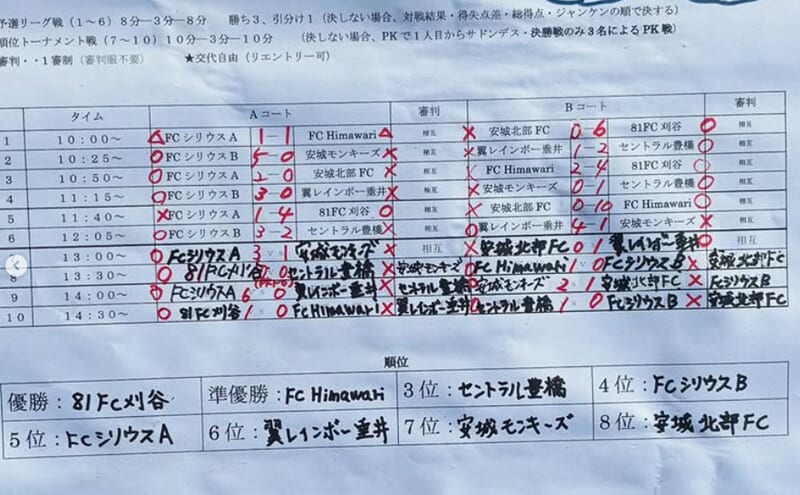 予選リーグ戦（1～6）8分―3分―8分　勝ち3、引分け1（決しない場合、対戦結果・得失点差・総得点・ジャンケンの順で決する）
順位トーナメント戦（7～10）10分―3分―10分　（決しない場合、PKで1人目からサドンデス・決勝戦のみ3名によるPK戦）
審判・・1審制（審判服不要）　★交代自由（リエントリー可）
タイム　Aコート　審判　Bコート　審判
1　10:00～　△FCシリウスA　1－1　FC Himawari△　相互　×安城北部FC　0－6　81FC刈谷○　相互
2　10:25～　○FCシリウスB　5－0　安城モンキーズ×　相互　×翼レインボー垂井　1－2　セントラル豊橋○　相互
3　10:50～　○FCシリウスA　2－0　安城北部FC×　相互　×FC Himawari　2－4　81FC刈谷○　相互
4　11:15～　○FCシリウスB　3－0　翼レインボー垂井×　相互　×安城モンキーズ　0－1　セントラル豊橋○　相互
5　11:40～　×FCシリウスA　1－4　81FC刈谷○　相互　×安城北部FC　0－10　FC Himawari○　相互
6　12:05～　○FCシリウスB　3－2　セントラル豊橋×　相互　○翼レインボー垂井　4－1　安城モンキーズ×　相互
13:00～　○FCシリウスA　3　1　安城モンキーズ×　相互　×安城北部FC　0　1　翼レインボー垂井○　相互
8　13:30～　○81FC刈谷　0　0　セントラル豊橋×　安城モンキーズ　○FC Himawari　1　0　FCシリウスB×　安城北部FC
9　14:00～　○FCシリウスA　6　0　翼レインボー垂井×　セントラル豊橋　○安城モンキーズ　2　1　安城北部FC×　FCシリウスB
10　14:30～　○81FC刈谷　1　0　FC Himawari×　翼レインボー垂井　○セントラル豊橋　1　0　FCシリウスB×　安城北部FC
順位
優勝：81FC刈谷　準優勝：FC Himawari　3位：セントラル豊橋　4位：FCシリウスB
5位：FCシリウスA　6位：翼レインボー垂井　7位：安城モンキーズ　8位：安城北部FC